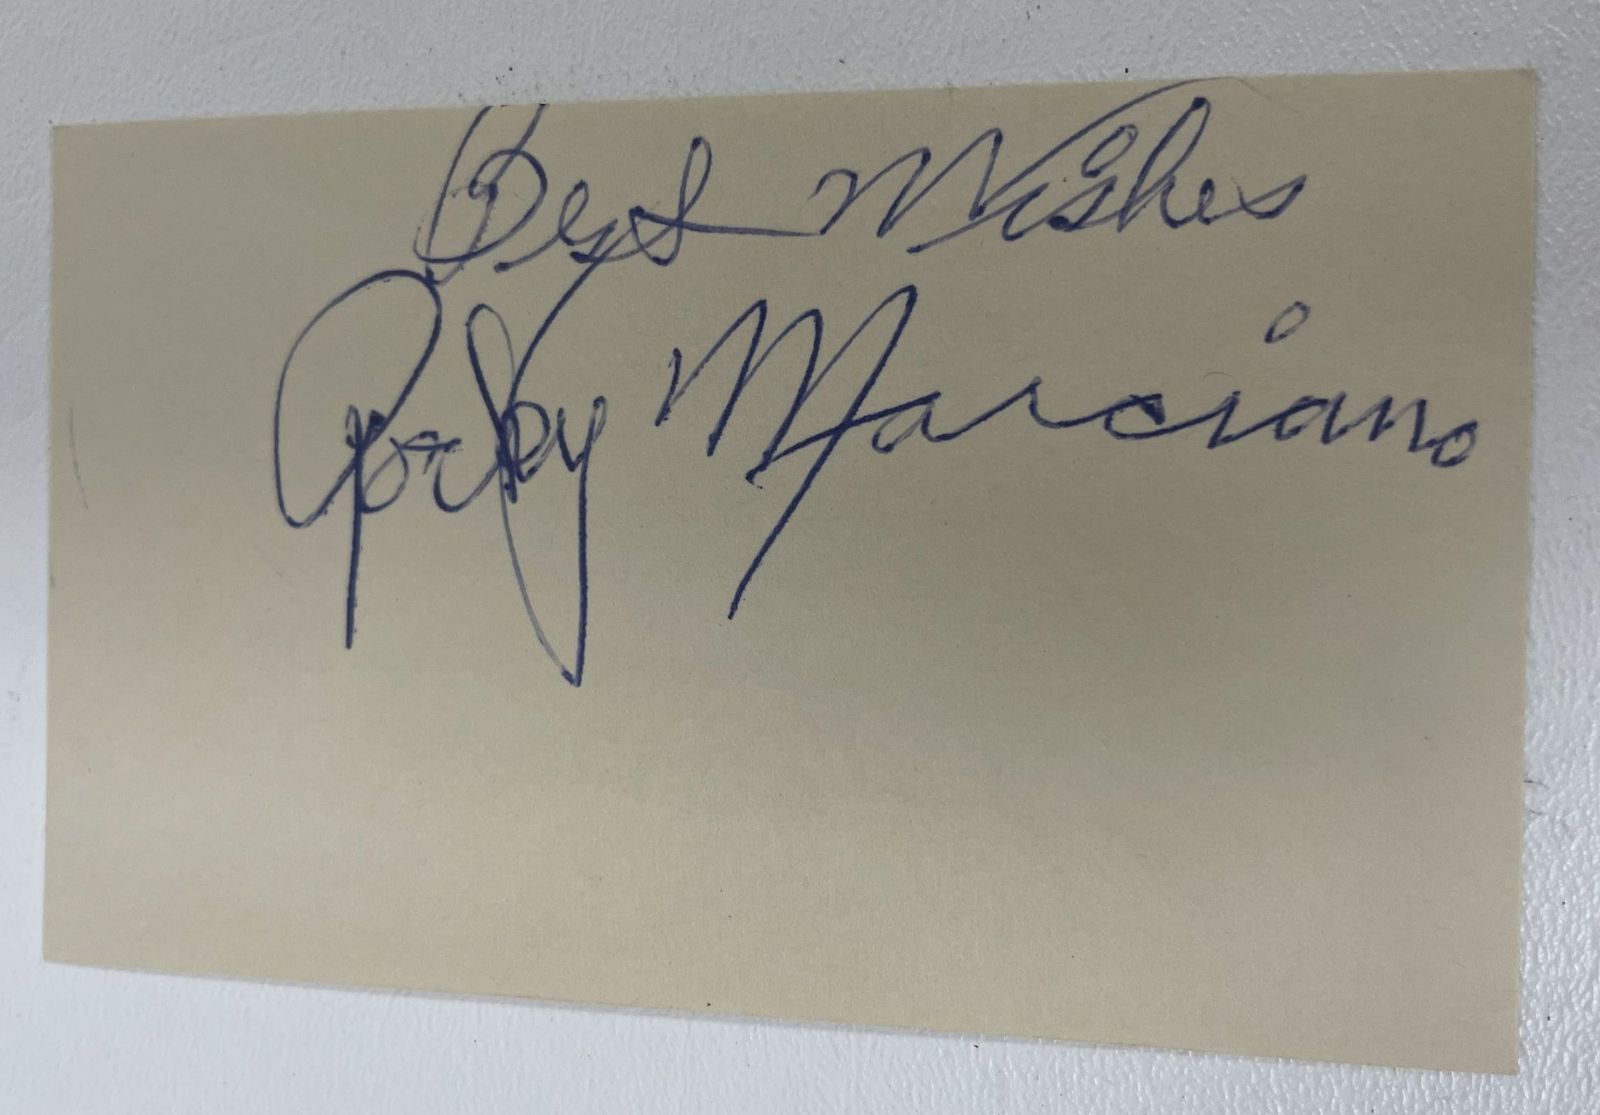 Best Wishes
Rocky Marciano